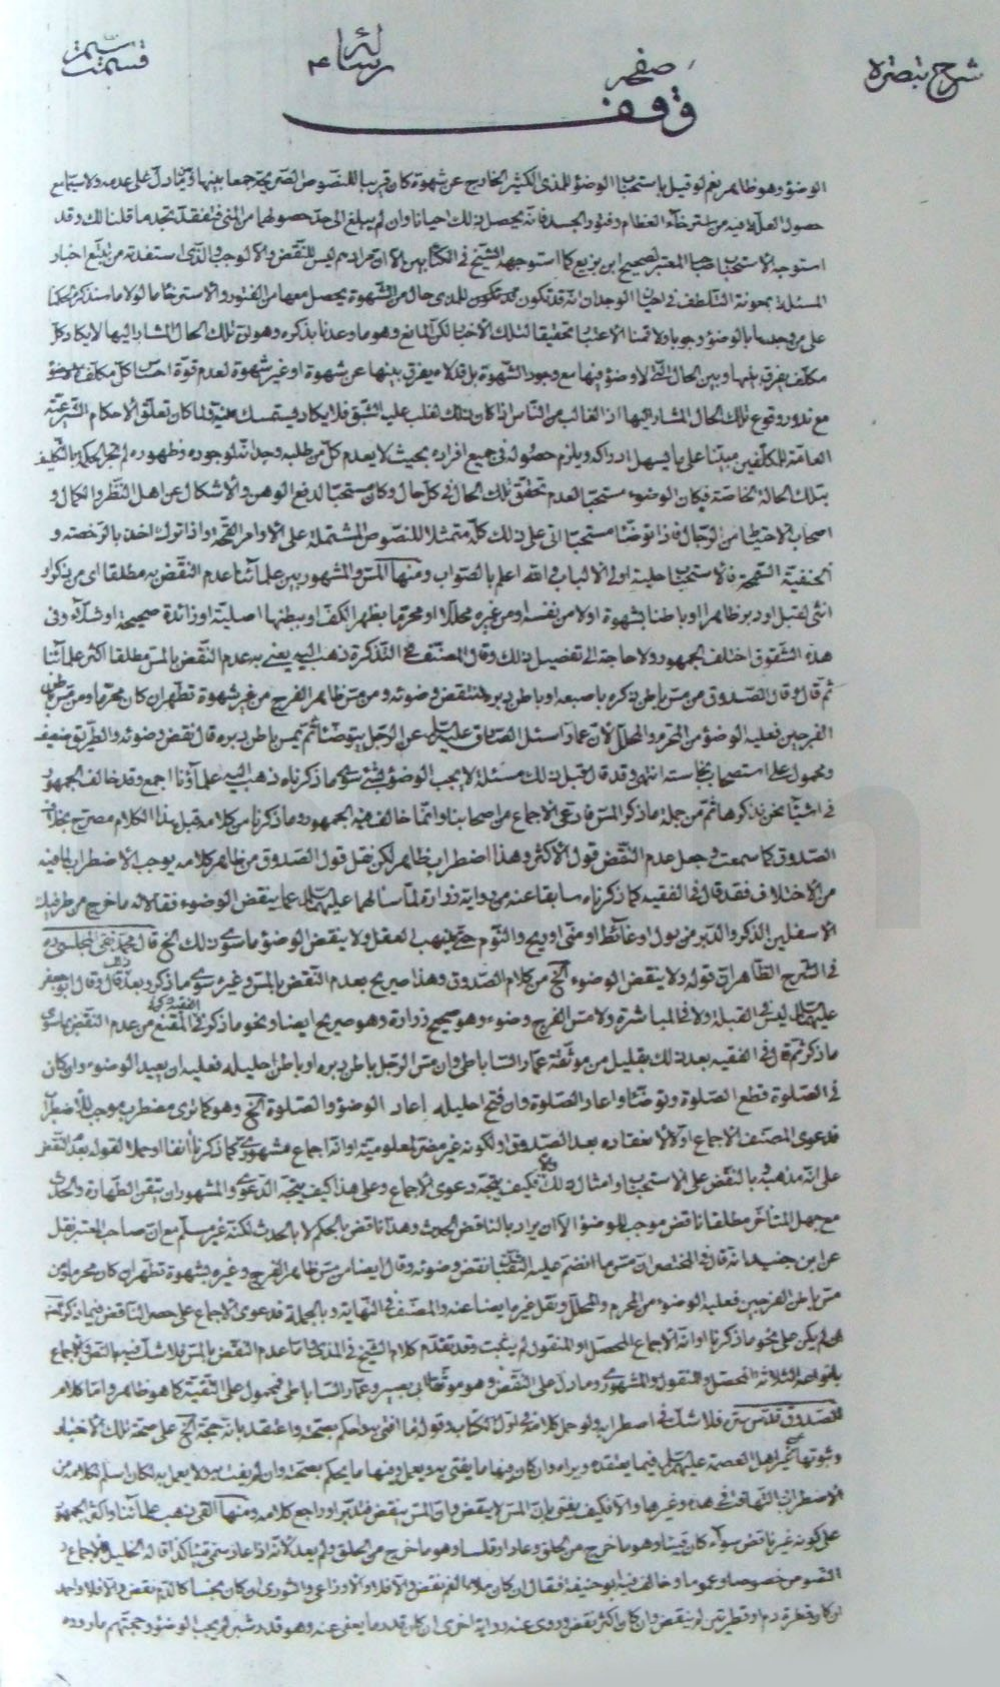 شرح تبصره
صفحه
رساله ۴
قسمت
وقف
الوضوء وهو ظاهر نعم لو قيل باستحباب الوضوء للمذى الكثير الخارج عن شهوة كان قريبا للنصوص الصريحة جمعا بينها وبين ما دل على عدمه ولا سيما مع
حصول العلة فيه من استرخاء العظام وفتور الجسد فانه يحصل ذلك احيانا وان لم يبلغ الى حد حصولهما من المنى فتفقد تجد ما قلنا لك وقد
استوجه الاستحباب صاحب المعتبر لصحيح ابن بزيع كما استوجهه الشيخ في الكتابين الا ان مرادهم ليس للنقض والا لوجب والذى استفدته من تتبع اخبار
المسئلة بمعونة التلطف في احيان الوجدان انه قد تكون للمذى حال من الشهوة يحصل معها من الفتور والاسترخاء ما لولا ما سنذكره لحكمنا
على من وجدها بالوضوء وجوبا ولاتمنا الاعتبار تحقيقا لتلك الاخبار لكن المانع وهو ما وعدنا بذكره وهو ان تلك الحال المشار اليها لا يكاد كل
مكلف يفرق بينها وبين الحال التى لا وضوء فيها مع وجود الشهوة بل قد لا يفرق بينها عن شهوة او غير شهوة لعدم قوة احساس كل مكلف
مع ندور وقوع تلك الحال المشار اليها اذ الغالب من الناس اذا كان تلك تغلب عليه الشبق فلا يكاد يستمسك فلما كان تعلق الاحكام الشرعية
العامة للمكلفين مبنيا على ما يسهل ادراكه ويلزم حصوله في جميع افراده بحيث لا يعدم كل من طلبه وجدانه لوجوده وظهوره لم يجر الحكم بالتكليف
بتلك الحالة الخاصة فكان الوضوء مستحبا لعدم تحقق تلك الحال في كل حال وكان مستحبا لدفع الوهن والاشكال عن اهل النظر والكمال و
اصحاب الاحتياط من الرجال فاذا توضأ مستحبا اتى على ذلك كله متمثلا للنصوص المشتملة على الاوامر واذا ترك اخذ بالرخصة و
الحنفية السمحة فالاستحباب حلية اولى الالباب والله اعلم بالصواب ومنها المس والمشهور بين علمائنا عدم النقض به مطلقا اى من ذكر او
انثى لقبل او دبر ظاهرا او باطنا بشهوة اولا من نفسه او من غيره محللا او محرما بظهر الكف او ببطنها اصلية او زائدة صحيحة او شلاء وفى
هذه الشقوق اختلف الجمهور ولا حاجة الى تفصيل ذلك وقال المصنف في التذكرة ذهب اليه يعنى به عدم النقض بالمس مطلقا اكثر علمائنا
ثم قال وقال الصدوق من مس باطن ذكره باصبعه او باطن دبره انتقض وضوئه ومن مس ظاهر الفرج من غير شهوة تطهر ان كان محرما ومن مس باطن
الفرجين فعليه الوضوء من المحرم والمحلل لان عمارا سئل الصادق عليه السلام عن الرجل يتوضأ ثم يمس باطن دبره قال نقض وضوئه والطريق ضعيف
ومحمول على استصحاب نجاسته انتهى وقد قال قبل ذلك مسئلة لا يجب الوضوء بشئ سوى ما ذكرناه ذهب اليه علماؤنا اجمع وقد خالف الجمهور
في اشياء نحن نذكرها ثم من جملة ما ذكر المس فادعى الاجماع من اصحابنا وانما خالف فيه الجمهور وما ذكرنا من كلامه قبل هذا الكلام مصرح بخلاف
الصدوق كما سمعت وجعل عدم النقض قول الاكثر وهذا اضطراب ظاهر لكن نقل قول الصدوق من ظاهر كلامه يوجب الاضطراب لما فيه
من الاختلاف فقد قال في الفقيه كما ذكرناه سابقا عنه من رواية زرارة لما سالهما عليهما السلام عما ينقض الوضوء فقالا له ما خرج من طرفيك
الاسفلين الذكر والدبر من بول او غائط او منى او ريح والنوم حتى يذهب العقل ولا ينقض الوضوء ما سوى ذلك الخ قال محمد تقى المجلسى ره
في الشرح الظاهر ان قوله ولا ينقض الوضوء الخ من كلام الصدوق وهذا صريح بعدم النقض بالمس وغيره سوى ما ذكر وبعد ذلك قال وقال ابو جعفر
عليه السلام ليس في القبلة ولا في المباشرة ولا مس الفرج وضوء وهو صحيح زرارة وهو صريح ايضا ونحو ما ذكر في الفقيه ذكره في المقنع من عدم النقض بما سوى
ما ذكر ثم قال في الفقيه بعد ذلك بقليل من موثقة عمار الساباطى وان مس الرجل باطن دبره او باطن احليله فعليه ان يعيد الوضوء وان كان
في الصلوة قطع الصلوة وتوضأ واعاد الصلوة وان فتح احليله اعاد الوضوء والصلوة الخ وهو كما ترى مضطرب موجب للاضطراب
فدعوى المصنف الاجماع اولا لانعقاده بعد الصدوق او لكونه غير مضر لمعلوميته او انه اجماع مشهورى كما ذكرنا آنفا او حملا لقوله بعد النقض
على انه مذهبه بالنقض على الاستحباب وامثال ذلك فكيف يتجه دعوى الاجماع وعلى هذا كيف يتجه الدعوى والمشهور ان تيقن الطهارة والحدث
مع جهل المتأخر مطلقا ناقض موجب للوضوء الا ان يراد بالناقض الحدث وهذا ناقض بالحكم لا بالحدث لكنه غير مسلم مع ان صاحب المعتبر نقل
عن ابن جنيد انه قال في المختصر ان مس ما انضم عليه الثقبتان نقض وضوئه وقال ايضا من مس ظاهر الفرج وغيره بشهوة تطهر ان كان محرما ومن
مس باطن الفرجين فعليه الوضوء من المحرم والمحلل ونقل غيره ايضا عنه والمصنف في النهاية وبالجملة فدعوى الاجماع على حصر الناقض فيما ذكر
ان لم يكن على نحو ما ذكرنا او انه الاجماع المحصل او المنقول لم يثبت وقد تقدم كلام الشيخ في المذى واما عدم النقض بالمس فلا شك فيه بالنص والاجماع
بانواعه الثلاثة المحصل والمنقول والمشهورى وما دل على النقض وهو موثقتا ابى بصير وعمار الساباطى فمحمول على التقية كما هو ظاهر واما كلام
الصدوق قدس سره فلا شك في اضطرابه ولو حمل كلامه في اول الكتاب وقوله ما افتى به واحكم بصحته واعتقد بانه حجة الخ على صحة تلك الاخبار
وثبوتها عن اهل العصمة عليهم السلام فيما يعتقده ويراه وان كان فيها ما يفتى به ويعمل وفيها ما يحكم بصحته وان لم يفت به ولا يعمل به لكان اسلم لكلامه من
الاضطراب والتهافت في هذه وغيرها والا فكيف يفتى بان المس لا ينقض وان المس ينقض فتدبر وراجع كلامه ومنها القى ذهب علمائنا واكثر الجمهور
على كونه غير ناقض سواء كان قيئا وهو ما خرج من الحلق وعاد او قلسا وهو ما خرج من الحلق ولم يعد لانه اذا عاد سمى قيئا كذا قاله الخليل والاجماع و
النصوص خصوصا وعموما وخالف فيه ابو حنيفة فقال ان كان ملأ الفم نقض والا فلا والاوزاعى والثورى ان كان نجسا كالدم نقض والا فلا واحمد
ان كان قطرة دم او قطرتين لم ينقض وان كان اكثر نقض وروى عنه رواية اخرى ان كان قدر ما يعفى عنه وهو قدر شبر لم يجب الوضوء وحجتهم ما رووه